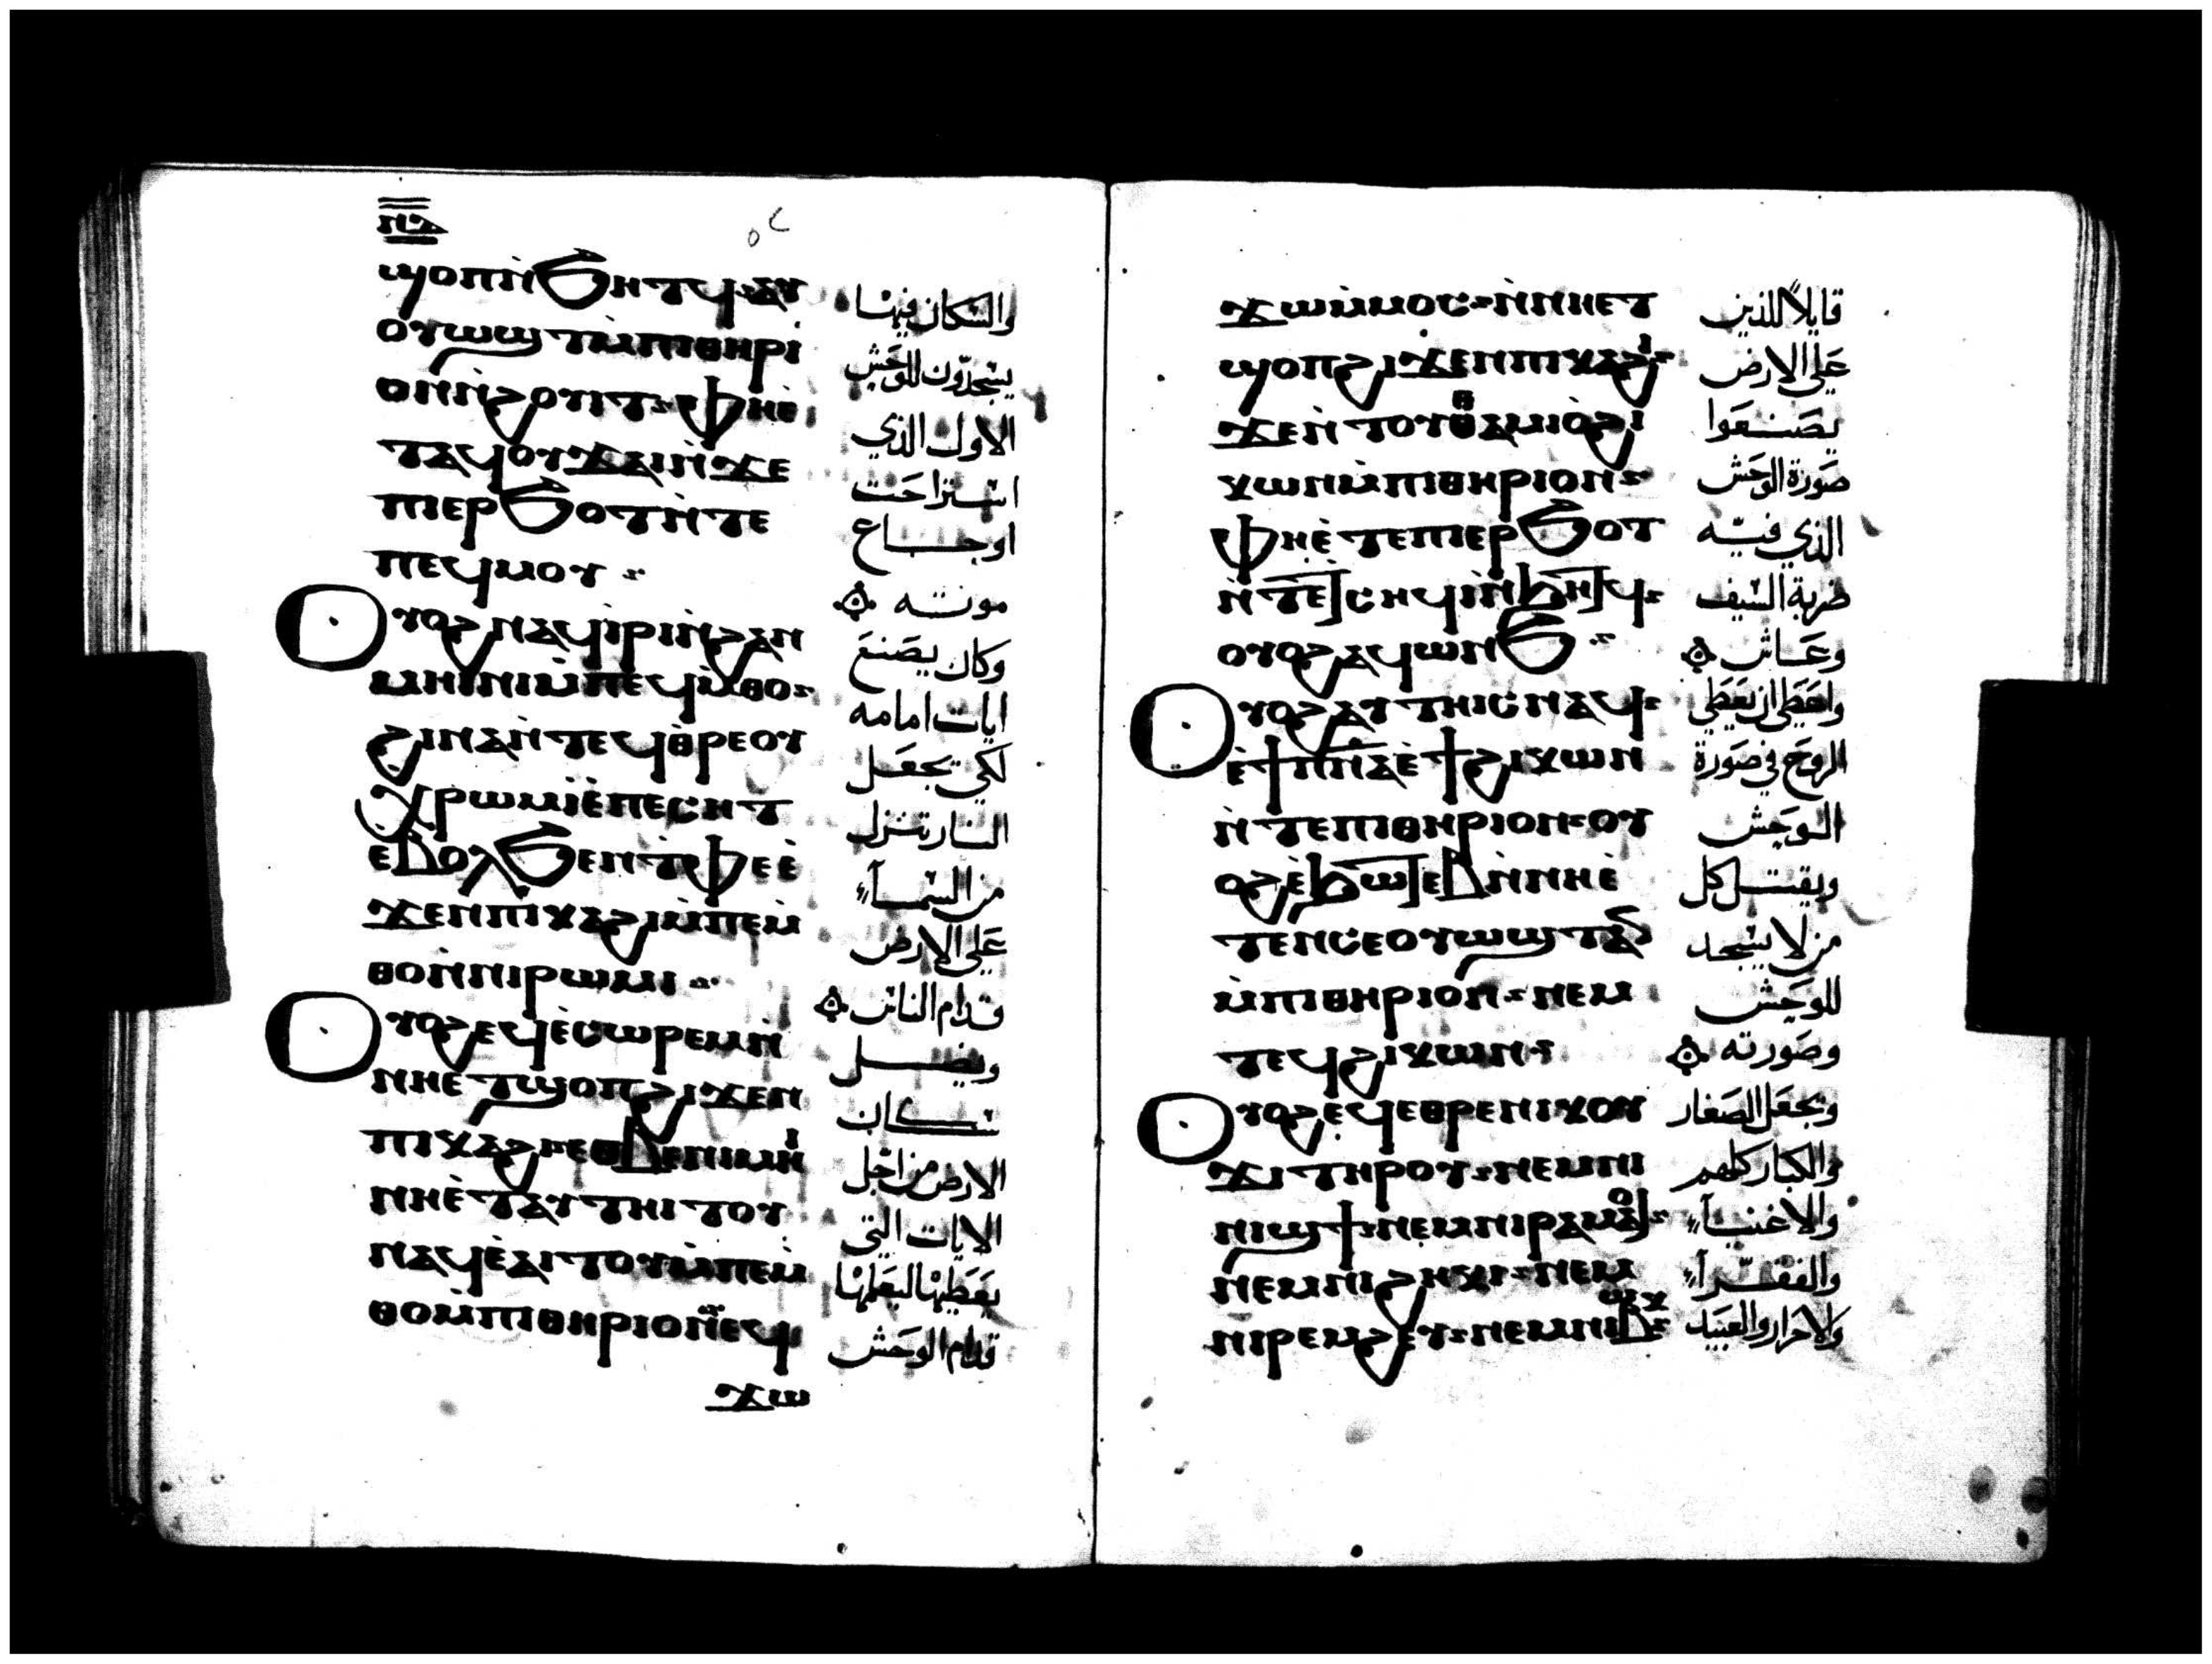 ⲛ̅ⲇ̅
ϣⲟⲡ ⲛ̀ϧⲏⲧϥ ⲁⲩ
ⲟⲩⲱϣⲧ ⲙ̀ⲡⲓⲑⲏⲣⲓ
ⲟⲛ ⲛ̀ϩⲟⲩⲓⲧ ⲫⲏⲉ̀
ⲧⲁϥⲟⲩϫⲁⲓ ⲛ̀ϫⲉ
ⲡⲓⲉⲣϧⲟⲧ ⲛ̀ⲧⲉ
ⲡⲉϥⲙⲟⲩ
ⲟⲩⲟϩ ⲛⲁϥⲓ̀ⲣⲓ ⲛ̀ϩⲁⲛ
ⲙⲏⲓⲛⲓ ⲙ̀ⲡⲉϥⲙ̀ⲑⲟ
ϩⲓⲛⲁ ⲛ̀ⲧⲉϥⲑⲣⲉⲟⲩ
ⲭⲣⲱⲙ ⲓ̀ ⲉ̀ⲡⲉⲥⲏⲧ
ⲉⲃⲟⲗϧⲉⲛ ⲧⲫⲉ ⲉ̀
ϫⲉⲛ ⲡⲓⲕⲁϩⲓ ⲙ̀ⲡⲉⲙ̀
ⲑⲟ ⲛ̀ⲛⲓⲣⲱⲙⲓ
ⲟⲩⲟϩ ⲉϥⲉ̀ⲥⲱⲣⲉⲙ ⲛ̀
ⲛⲏⲉⲧϣⲟⲡ ϩⲓϫⲉⲛ
ⲡⲓⲕⲁϩⲓ ⲉⲑⲃⲉ ⲛⲓⲙⲏⲓ
ⲛⲏⲉ̀ⲧⲁⲩⲧⲏⲓⲧⲟⲩ
ⲛⲁϥ ⲉ̀ⲁⲓⲧⲟⲩ ⲙ̀ⲡⲉⲙ̀
ⲑⲟ ⲙ̀ⲡⲓⲑⲏⲣⲓⲟⲛ ⲉϥ
ϫⲱ
والسكان فيها
يسجدون للوحش
الاول الذي
استراحت
اوجاع
موتته
وكان يصنع
ايات امامه
لكي يجعل
النار تنزل
من السمآء
على الارض
قدام الناس
ويضل
سكان
الارض من اجل
الايات التي
يعطيها ليعملها
قدام الوحش
ϫⲱ ⲙ̀ⲙⲟⲥ ⲛ̀ⲛⲏⲉⲧ
ϣⲟⲡ ϩⲓϫⲉⲛ ⲡⲓⲕⲁϩⲓ
ϫⲉ ⲛ̀ⲧⲟⲩⲑⲁⲙⲓⲟ̀ ϩⲓ
ⲕⲱⲛ ⲙ̀ⲡⲓⲑⲏⲣⲓⲟⲛ
ⲫⲏⲉ̀ⲧⲉ ⲡⲓⲉⲣϧⲟⲧ
ⲛ̀ⲧⲉϯⲥⲏϥⲓ ⲛ̀ϧⲏⲧϥ
ⲟⲩⲟϩ ⲁϥⲱⲛϧ
ⲟⲩⲟϩ ⲁⲩⲧⲏⲓⲥ ⲛⲁϥ
ⲉ̀ϯⲡ̅ⲛ̅ⲁ̅ ⲉ̀ϯϩⲓⲕⲱⲛ
ⲛ̀ⲧⲉ ⲡⲓⲑⲏⲣⲓⲟⲛ ⲟⲩ
ⲟϩ ⲉ̀ϧⲱⲧⲉⲃ ⲛ̀ⲛⲏⲉ̀
ⲧⲉⲛⲥⲉⲟⲩⲱϣⲧ ⲁⲛ
ⲙ̀ⲡⲓⲑⲏⲣⲓⲟⲛ ⲛⲉⲙ
ⲧⲉϥϩⲓⲕⲱⲛ
ⲟⲩⲟϩ ⲉϥⲉⲑⲣⲉ ⲛⲓⲕⲟⲩ
ϫⲓ ⲧⲏⲣⲟⲩ ⲛⲉⲙ ⲛⲓ
ⲛⲓϣϯ ⲛⲉⲙ ⲛⲓⲣⲁⲙⲁⲟ̀
ⲛⲉⲙ ⲛⲓϩⲏⲕⲓ ⲛⲉⲙ
ⲛⲓⲣⲉⲙϩⲉⲩ ⲛⲉⲙ ⲛⲓⲃⲱⲕ
قايلا للذين
على الارض
يصنعوا
صورة الوحش
الذي فيه
ضربة السيف
وعاش
واعطى ان يعطي
الروح في صورة
الوحش
ويقتل كل
من لا يسجد
للوحش
وصورته
ويجعل الصغار
والكبار كلهم
والاغنيآء
والفقرآء
والاحرار والعبيد